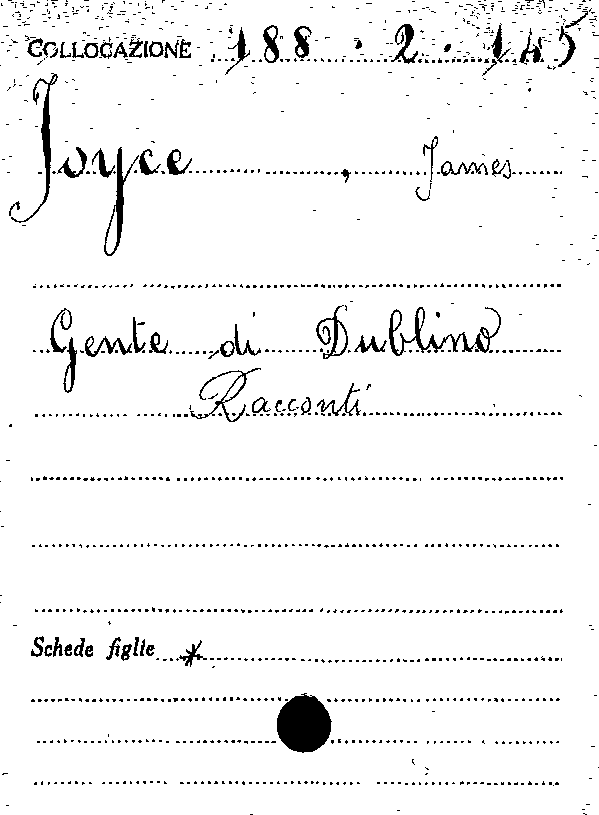 COLLOCAZIONE 188.2.145
Joyce, James
Gente di Dublino
Racconti
Schede figlie *